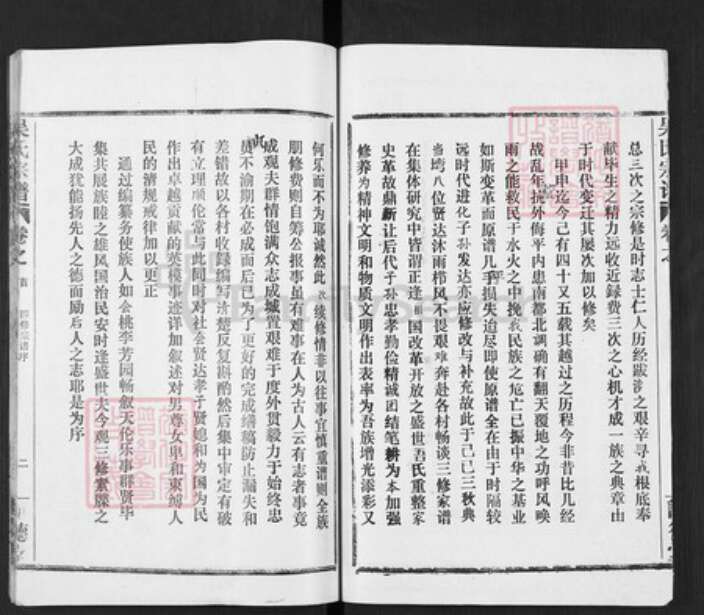 总三次之宗修是时志士仁人历经跋涉之艰辛寻我根底奉
献毕生之精力远收近録费三次之心机才成一族之典章由
于时代变迁其屡次加以修矣
甲申迄今己有四十又五载其越过之历程今非昔比几经
战乱年境外侮平内患南都北调确有翻天覆地之功呼风唤
雨之能救民于水火之中挽我民族之危亡已振中华之基业
如斯变革而原谱几乎损失迨尽即使原谱全在由于时隔较
远时代进化子孙发达亦应修改与补充故此于己巳三秋典
当塆八位贤达沐雨栉风不畏艰难奔赴各村畅谈三修家谱
在集体研究中皆谓正逢国改革开放之盛世吾氏重整家
史革故鼎新让后代子孙忠孝勤俭精诚团结笔耕为本加强
修养为精神文明和物质文明作出表率为吾族增光添彩又
何乐而不为耶诚然此次续修情非以往事宜慎重谱则全族
朋修费则自筹公报事虽有难事在人为古人云有志者事竟
成观夫群情饱满众志成城置艰难于度外贯毅力于始终忠
贞不渝期在必成而后已为了更好的完成缮稿防止漏失和
差错故以各村收録编写清楚反复斟酌然后集中审定有破
有立理顺伦常与此同时对社会贤达孝子贤媳和为国为民
作出卓越贡献的英模事迹详加叙述对男尊女卑和束缚人
民的清规戒律加以更正
通过编纂务使族人如会桃李芳园畅叙天伦乐事群贤毕
集共展族睦之雄风国治民安时逢盛世夫今观三修家牒之
大成犹能扬先人之德而励后人之志耶是为序
吴氏宗谱
卷之
首
四修宗谱序
二
吴氏宗谱
卷之